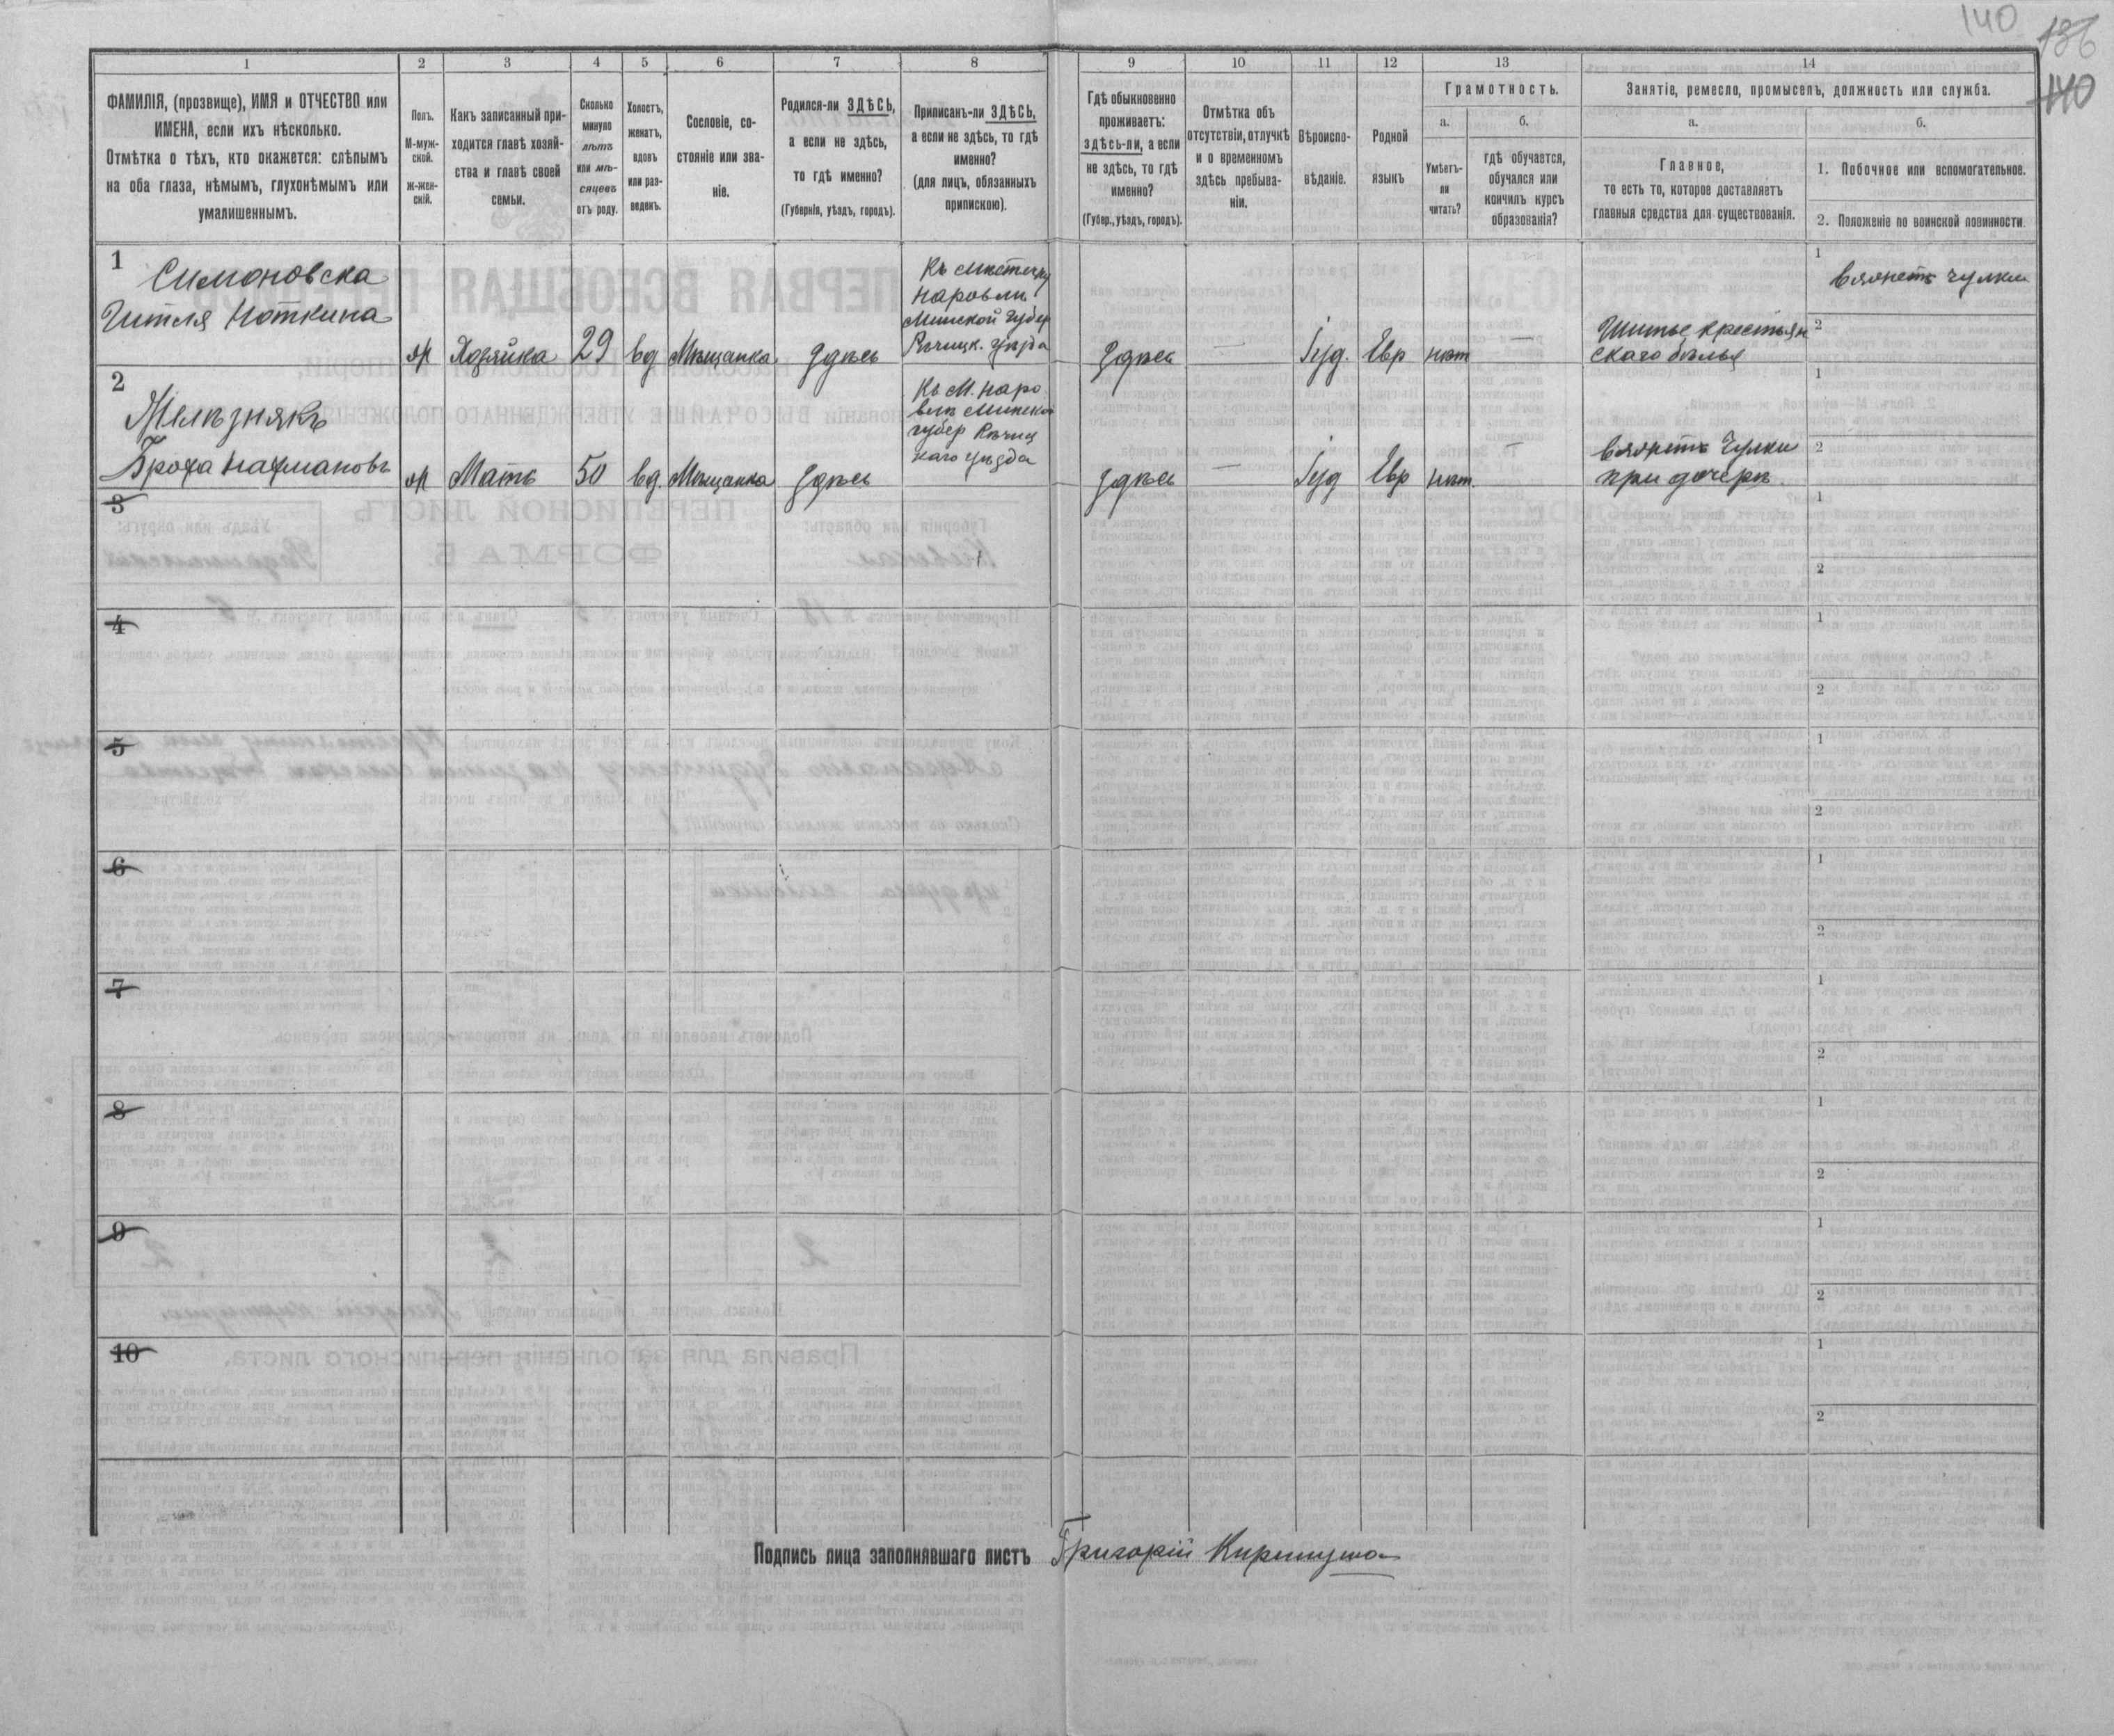 140
136
140
1
2
3
4
5
6
7
8
9
10
11
12
13
14
ФАМИЛІЯ, (прозвище), ИМЯ и ОТЧЕСТВО или
ИМЕНА, если ихъ нѣсколько.
Отмѣтка о тѣхъ, кто окажется: слѣпымъ
на оба глаза, нѣмымъ, глухонѣмымъ или
умалишеннымъ.
Полъ.
М-муж-
ской.
ж-жен-
скій.
Какъ записанный при-
ходится главѣ хозяй-
ства и главѣ своей
семьи.
Сколько
минуло
лѣтъ
или мѣ-
сяцевъ
отъ роду.
Холостъ,
женатъ,
вдовъ
или раз-
веденъ.
Сословіе, со-
стояніе или зва-
ніе.
Родился-ли ЗДѢСЬ,
а если не здѣсь,
то гдѣ именно?
(Губернія, уѣздъ, городъ).
Приписанъ-ли ЗДѢСЬ,
а если не здѣсь, то гдѣ
именно?
(для лицъ, обязанныхъ
припискою).
Гдѣ обыкновенно
проживаетъ:
здѣсь-ли, а если
не здѣсь, то гдѣ
именно?
(Губер., уѣздъ, городъ).
Отмѣтка объ
отсутствіи, отлучкѣ
и о временномъ
здѣсь пребыва-
ніи.
Вѣроиспо-
вѣданіе.
Родной
языкъ
Грамотность.
а.
Умѣетъ-
ли
читать?
б.
гдѣ обучается,
обучался или
кончилъ курсъ
образованія?
Занятіе, ремесло, промыселъ, должность или служба.
а.
Главное,
то есть то, которое доставляетъ
главныя средства для существованія.
б.
1. Побочное или вспомогательное.
2. Положеніе по воинской повинности.
1
Симоновска
Гитля Ноткина
ж
Хозяйка
29
вд
Мѣщанка
Здѣсь
Къ Мѣстечку
Наровли
Минской Губер
Рѣчицк. Уѣзда
Здѣсь
—
Іуд.
Евр
нѣт
—
Шитье крестьян
скаго бѣлья
1
вяжетъ чулки
2
2
Желѣзнякъ
Броха Нахмановъ
ж
Мать
50
вд.
Мѣщанка
Здѣсь
Къ М. Наро
влѣ Минской
губер Рѣчиц
каго уѣзда
Здѣсь
—
Іуд
Евр
нѣт.
—
вяжетъ Чулки
при дочери.
1
2
3
1
2
4
1
2
5
1
2
6
1
2
7
1
2
8
1
2
9
1
2
10
1
2
Подпись лица заполнявшаго листъ Григорій